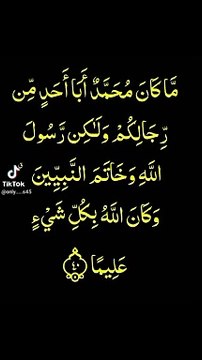 مَّا كَانَ مُحَمَّدٌ أَبَا أَحَدٍ مِّن
رِّجَالِكُمْ وَلَٰكِن رَّسُولَ
اللَّهِ وَخَاتَمَ النَّبِيِّينَ
وَكَانَ اللَّهُ بِكُلِّ شَيْءٍ
عَلِيمًا ٤٠
TikTok